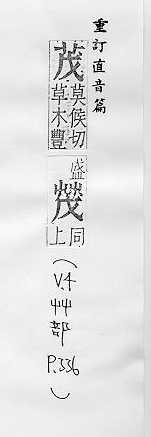 重訂直音篇
茂
莫候切
草木豐
盛
同
上
(V.4 艸部 P.336)